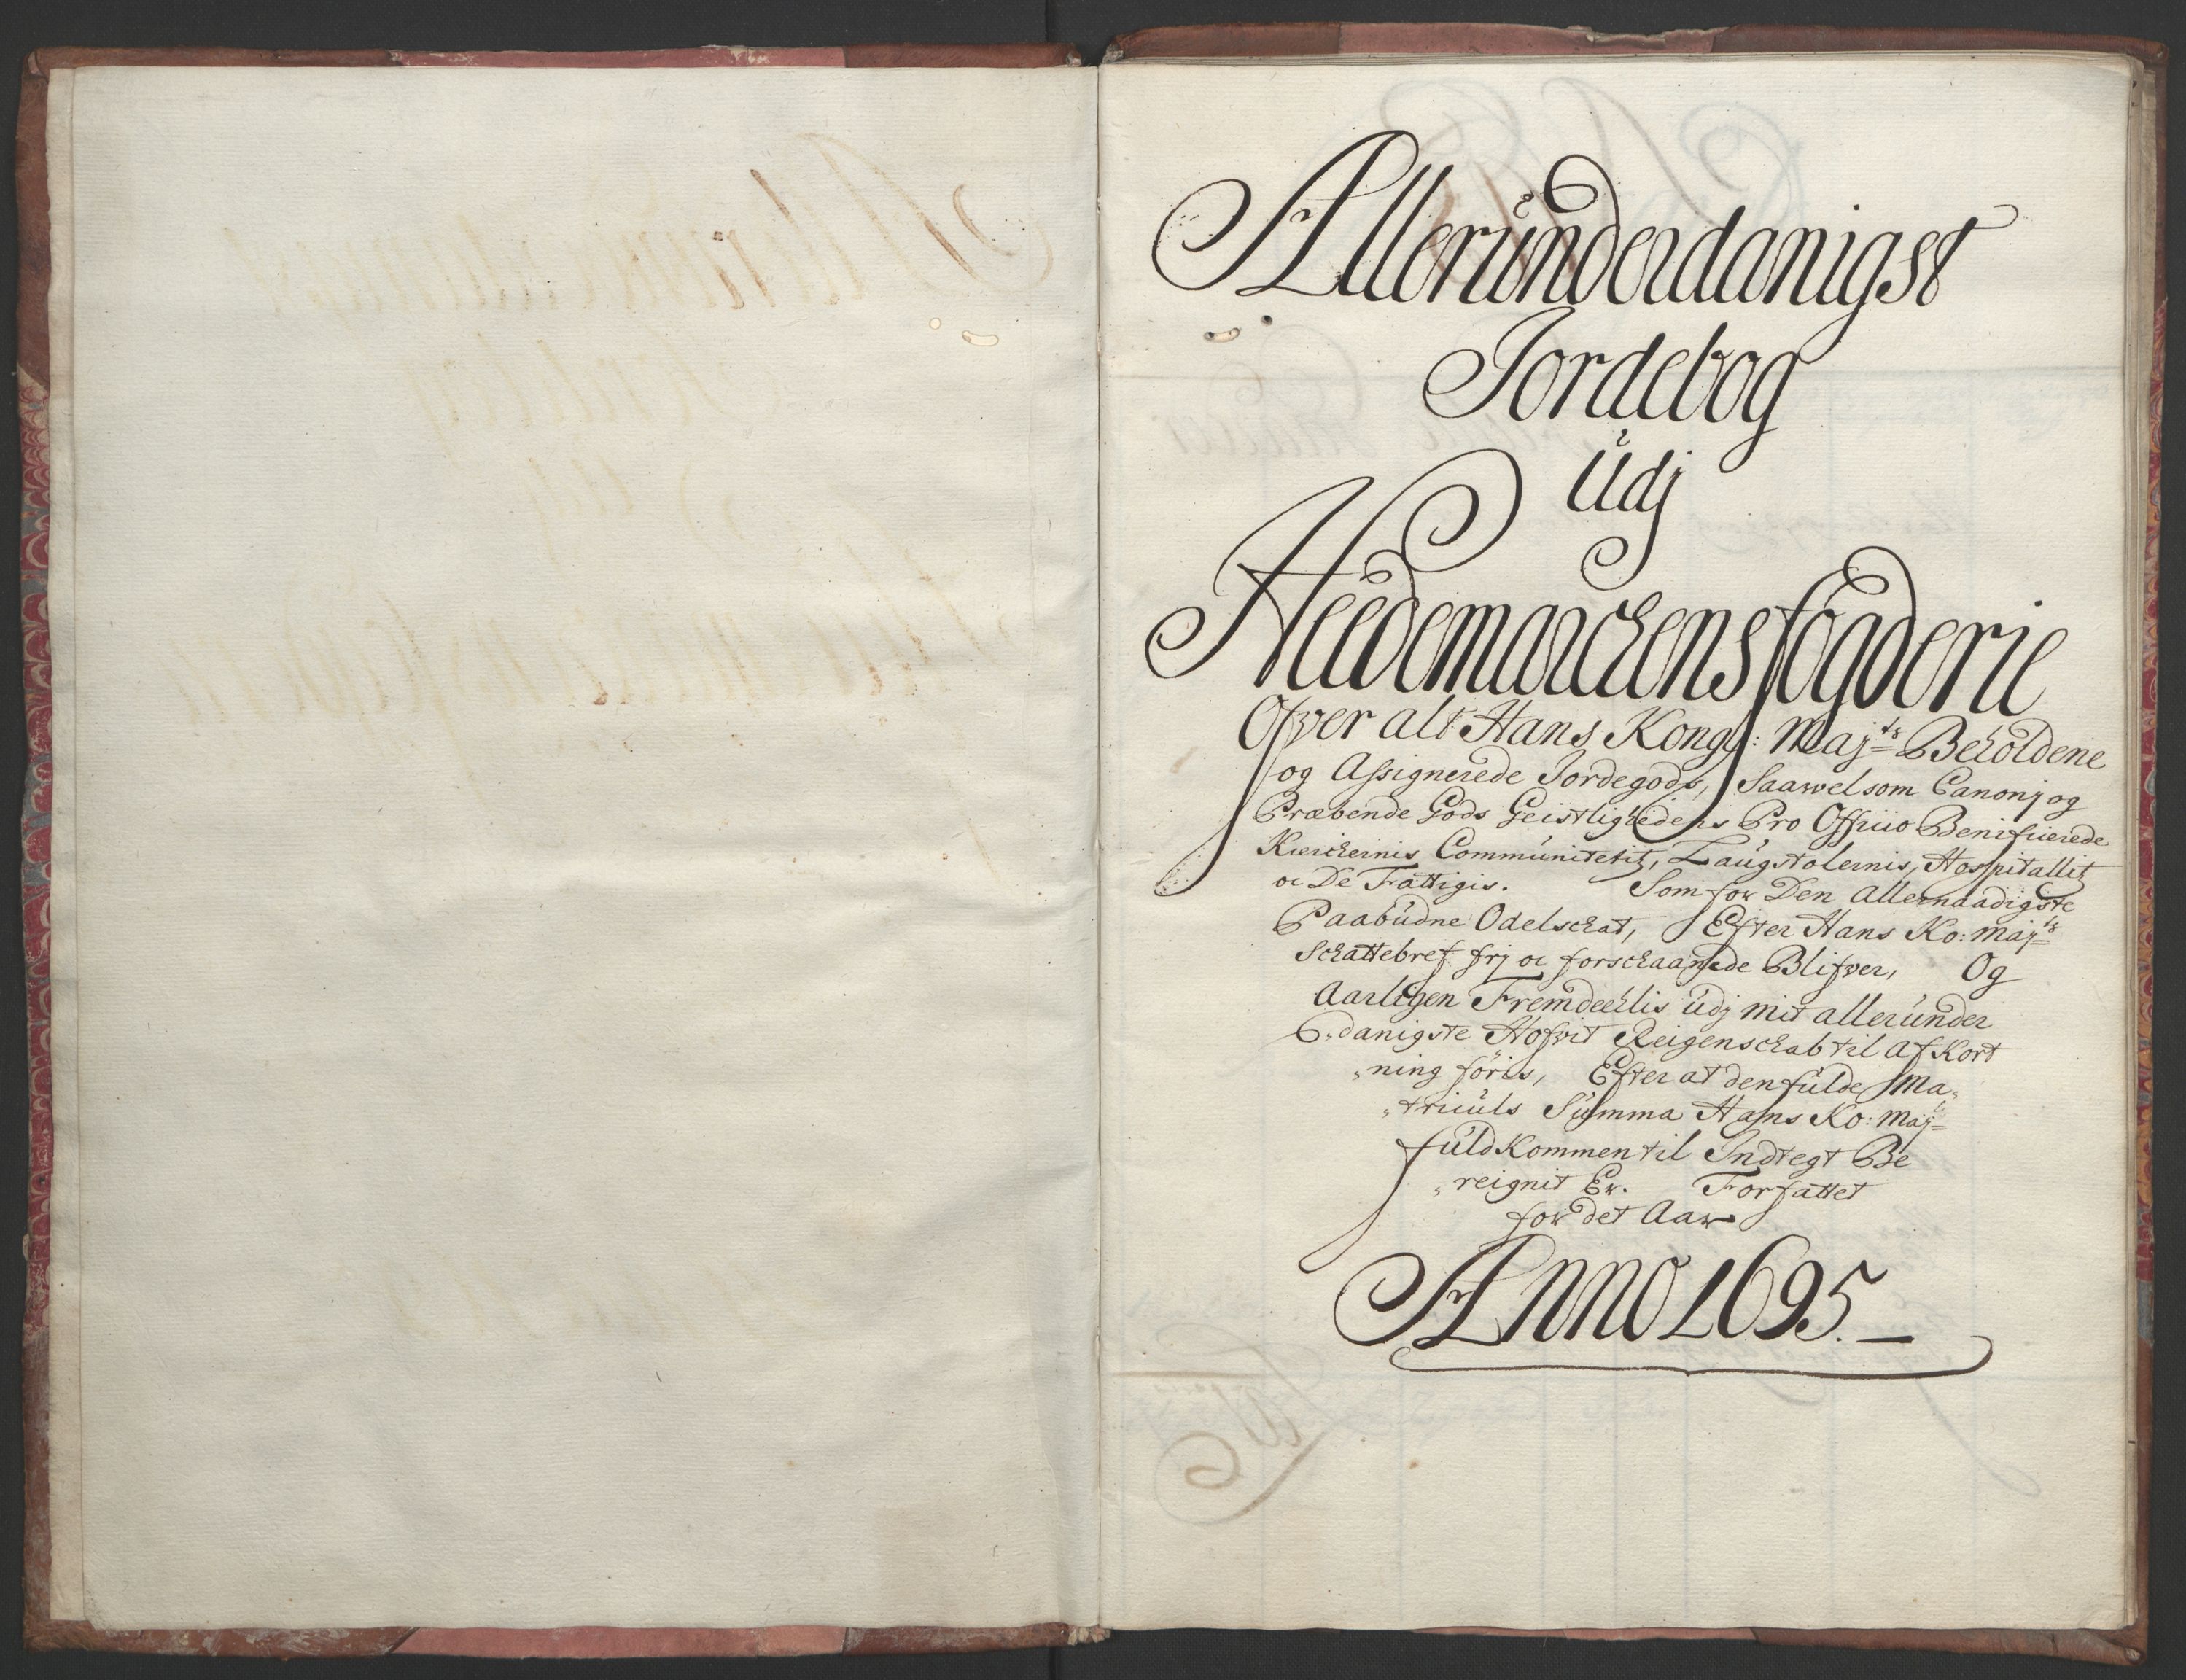 Alleründerdanigst
Jordebog
Üdj
Heedemarckens fögderie
Ofver alt Hans Kongl: Maj:ts Beholdene
og Assignerede Jordegods, Saawelsom Canonj og
Præbende Gods Geistlighedens Pro Officio Benificierede
Kierckernis Communitetit, Laugstolernis, Hospitallit
oc De Fattigis. Som for Den Allernaadigste
Paabüdne Odelsckat, Efter Hans Ko: Maj:ts
Sckattebref frj oc forsckaanede Blifver, Og
Aarligen Fremdeelis üdj mit alleründer
danigste Hofvit Reigensckab til Af Kort
"ning föris, Efter at den fulde Ma„
"tricüls Summa Hans Ko: Maj:ts
füldkommen til Indtegt Be
"reignit Er. Forfattet
for det Aar
Anno 1695.